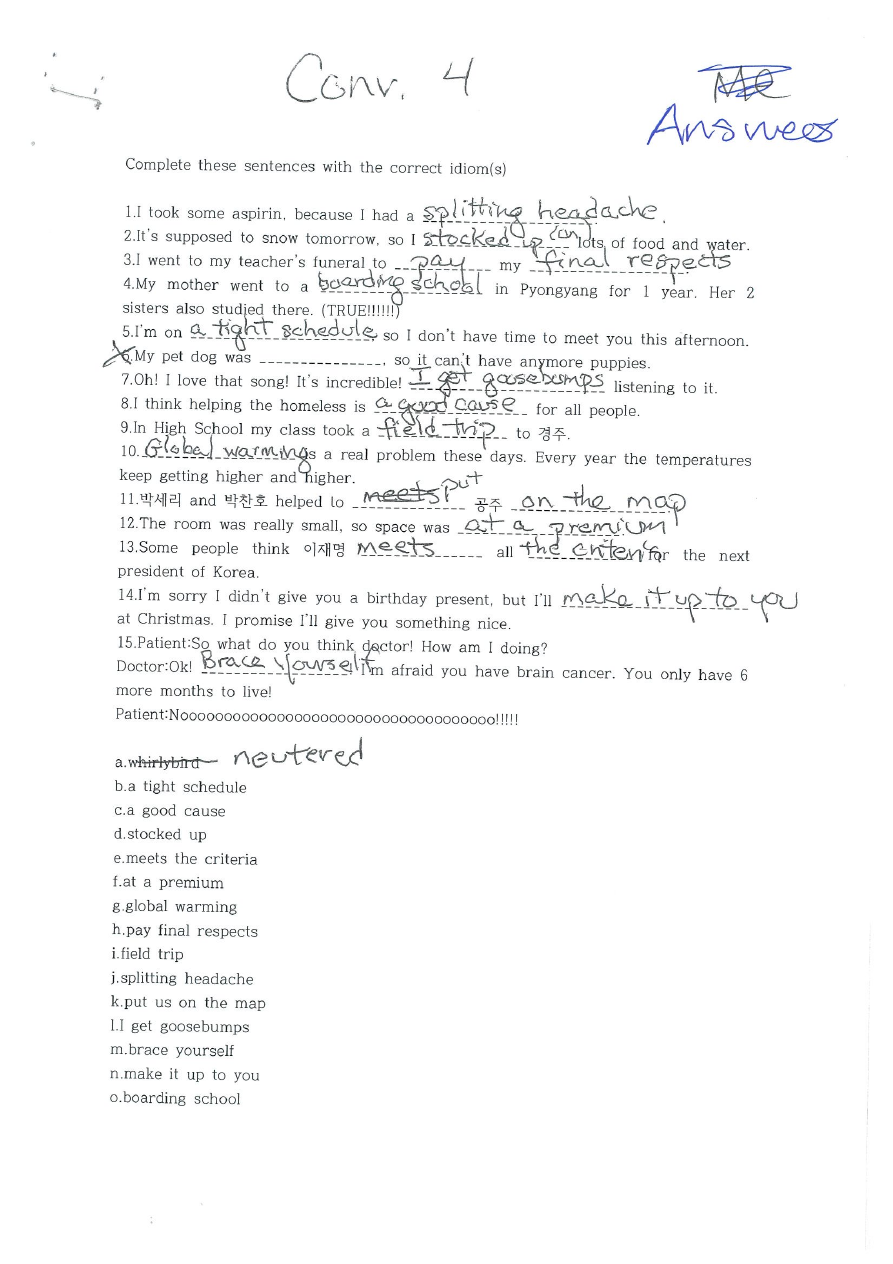 Conv. 4
Answers
Complete these sentences with the correct idiom(s)
1.I took some aspirin, because I had a splitting headache.
2.It's supposed to snow tomorrow, so I stocked up (on) lots of food and water.
3.I went to my teacher's funeral to pay my final respects
4.My mother went to a boarding school in Pyongyang for 1 year. Her 2
sisters also studied there. (TRUE!!!!!!)
5.I'm on a tight schedule, so I don't have time to meet you this afternoon.
6.My pet dog was _______________, so it can't have anymore puppies.
7.Oh! I love that song! It's incredible! I get goosebumps listening to it.
8.I think helping the homeless is a good cause for all people.
9.In High School my class took a field trip to 경주.
10. Global warming s a real problem these days. Every year the temperatures
keep getting higher and higher.
11.박세리 and 박찬호 helped to meets put 공주 on the map
12.The room was really small, so space was at a premium
13.Some people think 이재명 meets all the criteria for the next
president of Korea.
14.I'm sorry I didn't give you a birthday present, but I'll make it up to you
at Christmas. I promise I'll give you something nice.
15.Patient:So what do you think doctor! How am I doing?
Doctor:Ok! Brace yourself! I'm afraid you have brain cancer. You only have 6
more months to live!
Patient:Noooooooooooooooooooooooooooooooooooo!!!!!
a.whirlybird neutered
b.a tight schedule
c.a good cause
d.stocked up
e.meets the criteria
f.at a premium
g.global warming
h.pay final respects
i.field trip
j.splitting headache
k.put us on the map
l.I get goosebumps
m.brace yourself
n.make it up to you
o.boarding school